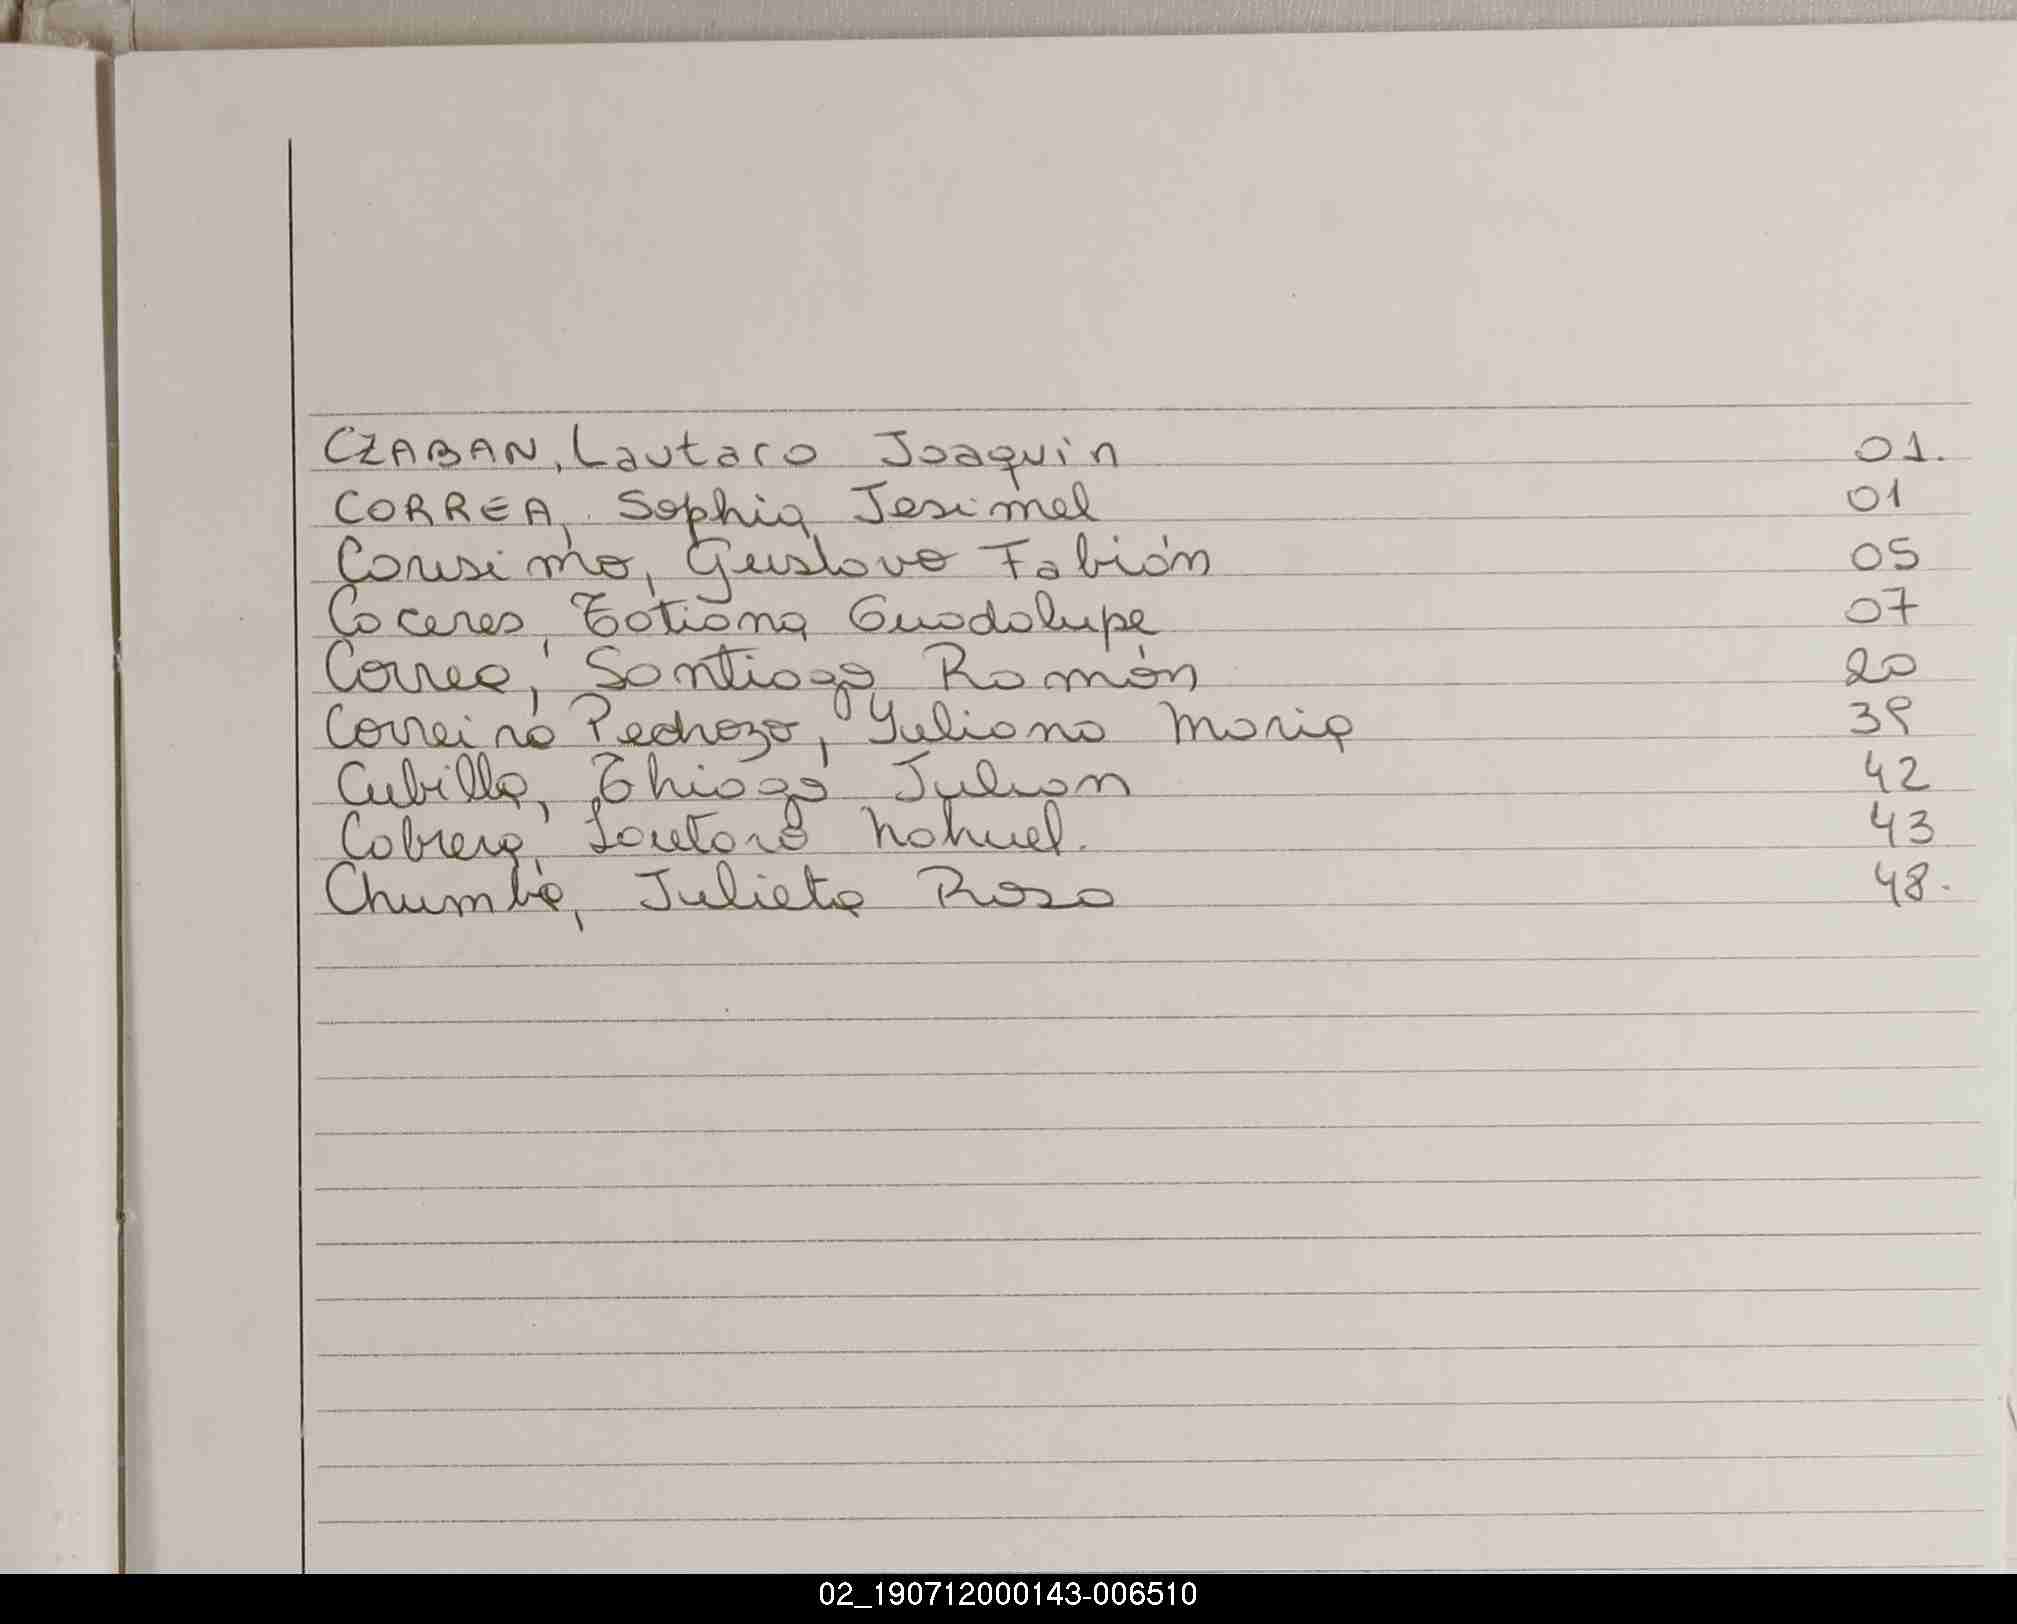 CZABAN, Lautaro Joaquin 01.
CORREA, Sophia Jesimel 01
Corusimo, Gustavo Fabián 05
Coceres, Tatiana Guadalupe 07
Correa, Santiago Román 20
Correira Pedrozo, Yuliana Maria 39
Cubilla, Thiago Julian 42
Cabrera, Lautaro Nahuel. 43
Chumbe, Julieta Rosa 48.
02_190712000143-006510